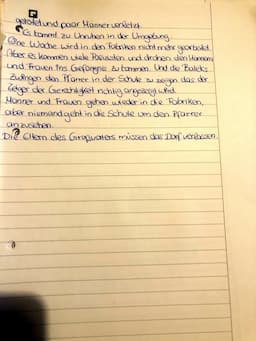 getötet und paar Männer verletzt.
Es kommt zu Unruhen in der Umgebung.
Eine Woche wird in den Fabriken nicht mehr gearbeitet.
Aber es kommen viele Polizisten und drohen den Männern
und Frauen ins Gefängnis zu kommen. Und die Baleks
zwingen den Pfarrer in der Schule zu zeigen das der
Zeiger der Gerechtigkeit richtig angezeigt wird.
Männer und Frauen gehen wieder in die Fabriken,
aber niemand geht in die Schule um den Pfarrer
anzusehen.
Die Eltern des Großvaters müssen das Dorf verlassen.